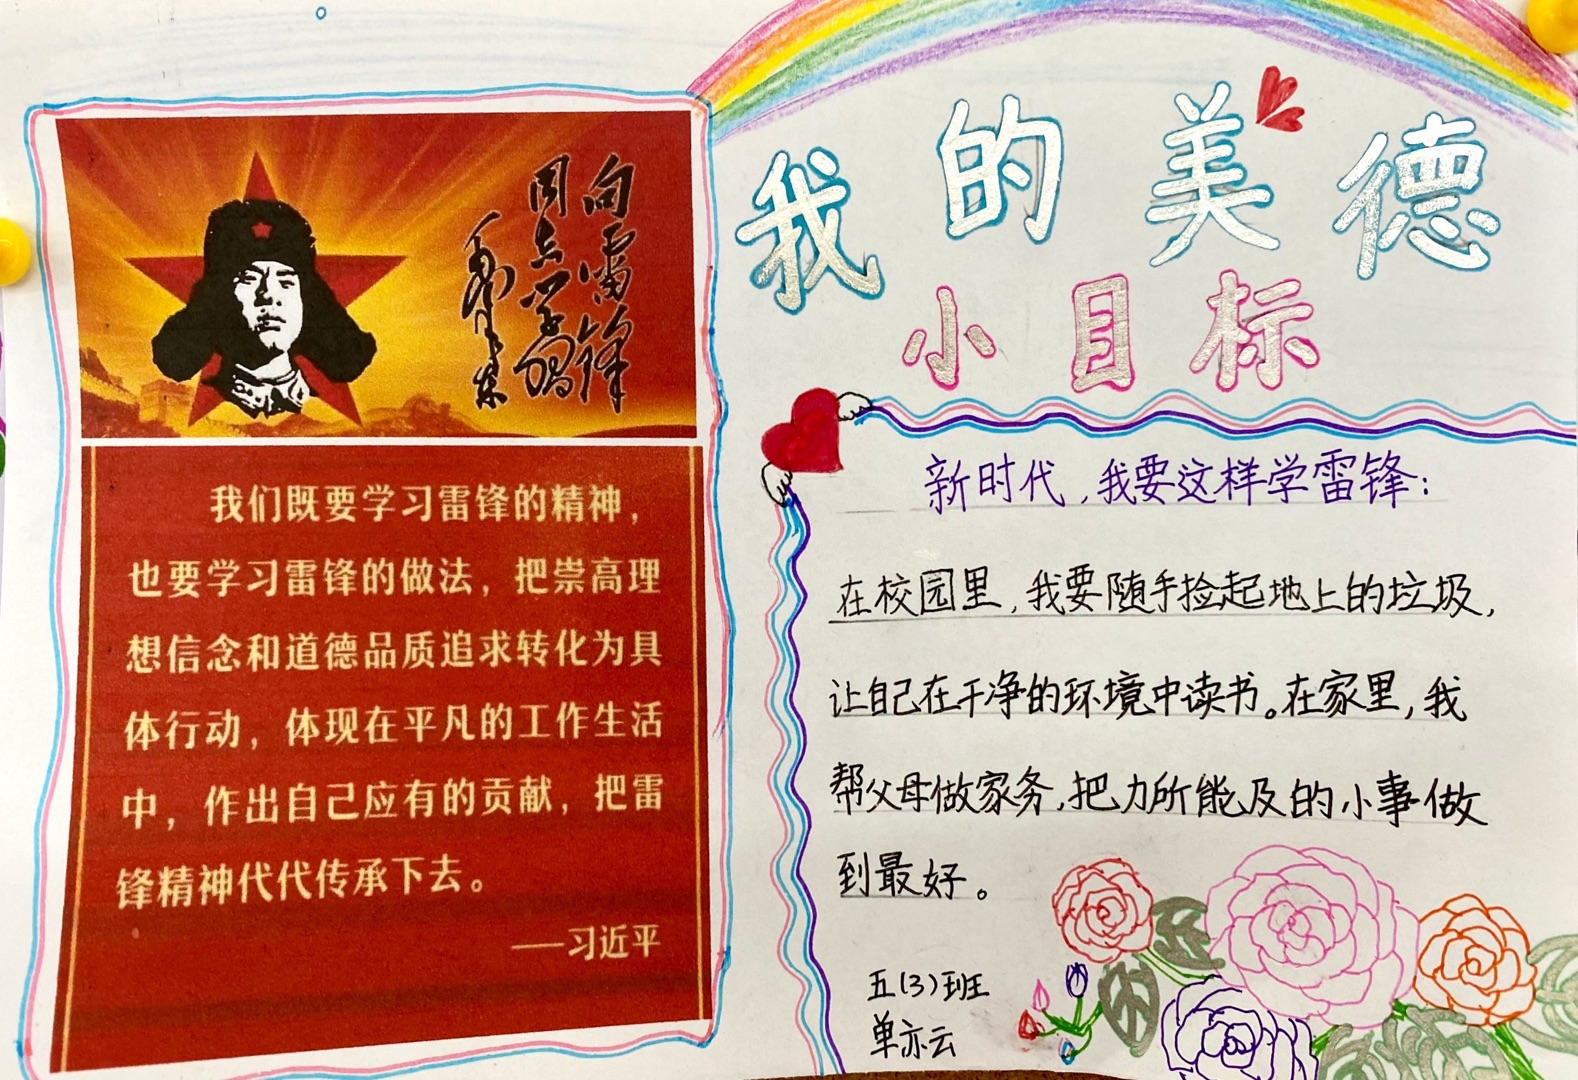 向雷锋
同志学习
毛泽东
我们既要学习雷锋的精神，
也要学习雷锋的做法，把崇高理
想信念和道德品质追求转化为具
体行动，体现在平凡的工作生活
中，作出自己应有的贡献，把雷
锋精神代代传承下去。
——习近平
我的美德
小目标
新时代，我要这样学雷锋：
在校园里，我要随手捡起地上的垃圾，
让自己在干净的环境中读书。在家里，我
帮父母做家务，把力所能及的小事做
到最好。
五(3)班
单亦云